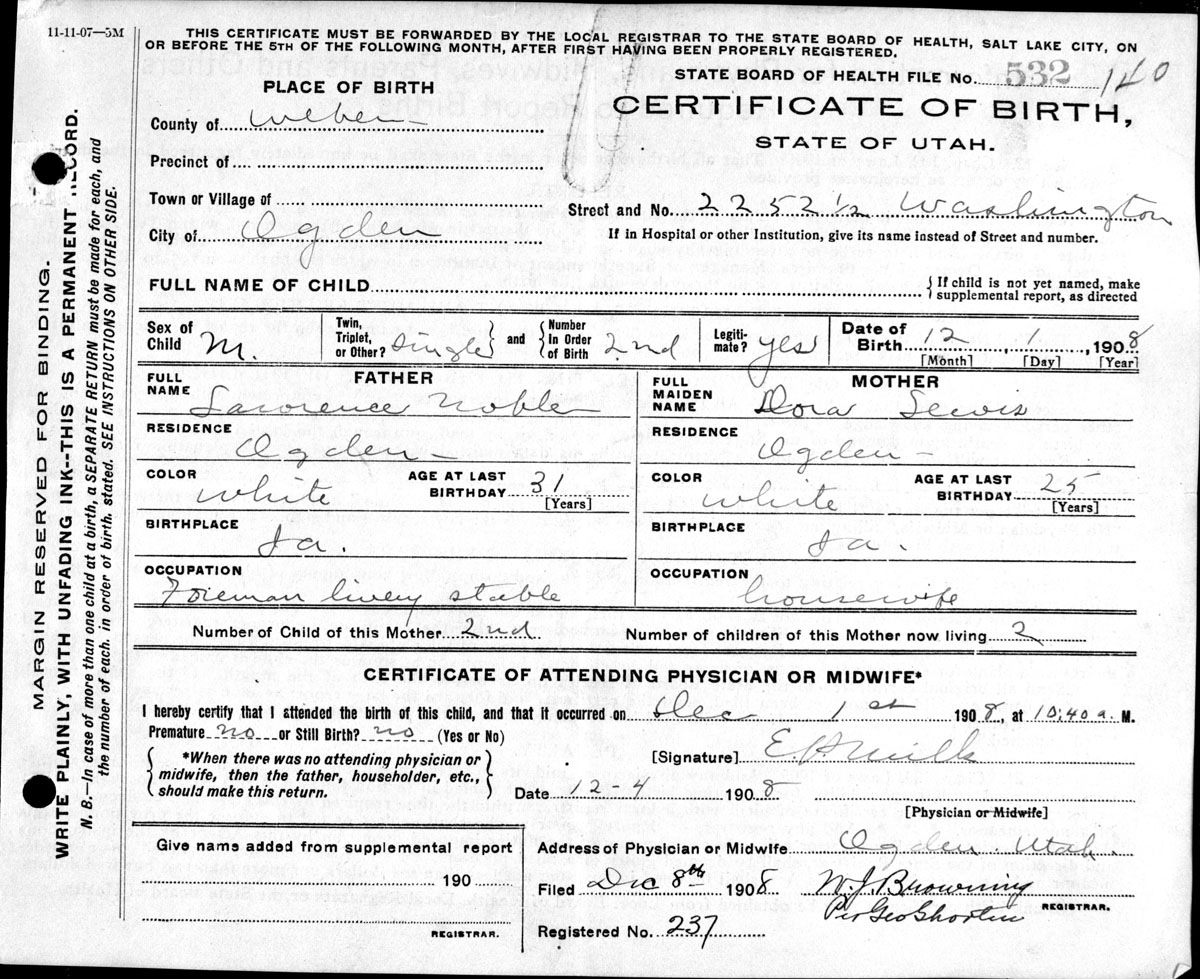 11-11-07—5M
THIS CERTIFICATE MUST BE FORWARDED BY THE LOCAL REGISTRAR TO THE STATE BOARD OF HEALTH, SALT LAKE CITY, ON
OR BEFORE THE 5TH OF THE FOLLOWING MONTH, AFTER FIRST HAVING BEEN PROPERLY REGISTERED.
STATE BOARD OF HEALTH FILE No. 532 140
PLACE OF BIRTH
CERTIFICATE OF BIRTH,
STATE OF UTAH.
County of Weber
Precinct of
Town or Village of
Street and No. 2252 1/2 Washington
City of Ogden
If in Hospital or other Institution, give its name instead of Street and number.
FULL NAME OF CHILD
{ If child is not yet named, make
supplemental report, as directed
Sex of Child M. Twin, Triplet, or Other? Single and Number In Order of Birth 2nd Legiti-mate? yes Date of Birth 12 1, 1908
[Month] [Day] [Year]
FATHER MOTHER
FULL NAME Lawrence Noble FULL MAIDEN NAME Dora Lewis
RESIDENCE Ogden RESIDENCE Ogden
COLOR White AGE AT LAST BIRTHDAY 31 [Years] COLOR White AGE AT LAST BIRTHDAY 25 [Years]
BIRTHPLACE Ia. BIRTHPLACE Ia.
OCCUPATION Foreman livery stable OCCUPATION housewife
Number of Child of this Mother 2nd Number of children of this Mother now living 2
CERTIFICATE OF ATTENDING PHYSICIAN OR MIDWIFE*
I hereby certify that I attended the birth of this child, and that it occurred on Dec 1st 1908, at 10:40 a. M.
Premature no or Still Birth? no (Yes or No)
*When there was no attending physician or
midwife, then the father, householder, etc.,
should make this return.
[Signature] E. H. Mills
Date 12-4 1908
[Physician or Midwife]
Give name added from supplemental report
190
REGISTRAR.
Address of Physician or Midwife Ogden. Utah.
Filed Dec 8th 1908 W. J. Browning
REGISTRAR.
Per Geo Shorten
Registered No. 237
MARGIN RESERVED FOR BINDING.
WRITE PLAINLY, WITH UNFADING INK--THIS IS A PERMANENT RECORD.
N. B.—In case of more than one child at a birth, a SEPARATE RETURN must be made for each, and
the number of each, in order of birth, stated. SEE INSTRUCTIONS ON OTHER SIDE.